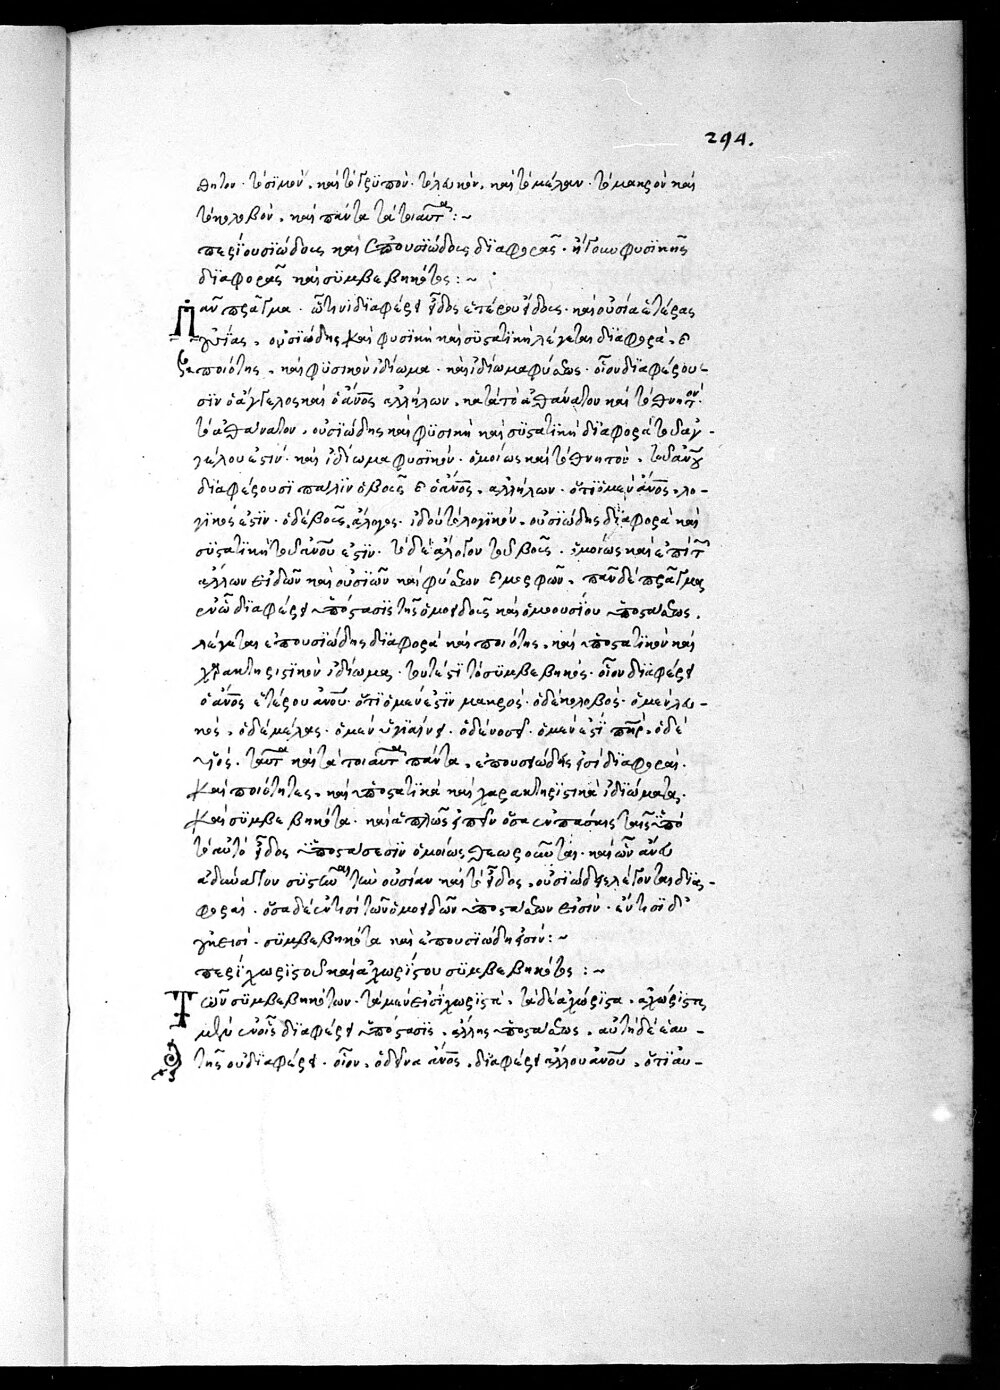 294.
θητον· τὸ σϊμὸν, καὶ τὸ γρϋπὸν· τὸ λευκὸν, καὶ τὸ μέλαν· τὸ μακρὸν καὶ
τὸ κολοβὸν, καὶ πάντα τὰ τοιαῦτα :~
περὶ οὐσϊώδους καὶ ἐπουσϊώδους δϊαφορᾶς· ἤγουν φυσικῆς
δϊαφορᾶς καὶ συμβεβηκότος :~
Πᾶν πρᾶγμα· ᾧτινι δϊαφέρει εἶδος ἑτέρου εἴδους· καὶ οὐσία ἑτέρας
οὐσίας, οὐσϊώδης καὶ φυσικὴ καὶ συστατϊκὴ λέγεται δϊαφορὰ, καὶ
ποιότης, καὶ φυσικὸν ἰδίωμα· καὶ ἰδίωμα φύσεως· οἷον δϊαφέρου-
σϊν ὁ ἄγγελος καὶ ὁ ἄνος ἀλλήλων, κατὰ τὸ ἀθάνατον καὶ τὸ θνητόν·
τὸ ἀθάνατον, οὐσϊώδης καὶ φυσικὴ καὶ συστατϊκὴ δϊαφορὰ τοῦ ἀγ-
γέλου ἐστὶν· καὶ ἰδίωμα φυσϊκόν· ὁμοίως καὶ τὸ θνητὸν, τοῦ ἀνου
δϊαφέρουσϊ πάλϊν ὁ βοῦς καὶ ὁ ἄνος, ἀλλήλων· ὅτι ὁ μὲν ἄνος, λο-
γϊκός ἐστϊν· ὁ δὲ βοῦς, ἄλογος· ἰδοὺ τὸ λογϊκὸν, οὐσϊώδης δϊαφορὰ καὶ
συστατϊκὴ τοῦ ἀνου ἐστϊν· τὸ δὲ ἄλογον τοῦ βοὸς· ὁμοίως καὶ ἐπὶ τῶν
ἄλλων εἰδῶν καὶ οὐσϊῶν καὶ φύσεων καὶ μορφῶν, πᾶν δὲ πρᾶγμα
ἐν ᾧ δϊαφέρει ὑπόστασϊς τῆς ὁμοειδοῦς καὶ ὁμοουσίου ὑποστάσεως,
λέγεται ἐπουσϊώδης δϊαφορὰ καὶ ποιότης, καὶ ὑποστατϊκὸν καὶ
χαρακτηριστϊκὸν ἰδίωμα· τουτέστϊ τὸ συμβεβηκὸς· οἷον δϊαφέρει
ὁ ἄνος ἑτέρου ἀνου· ὅτϊ ὁ μέν ἐστϊν μακρὸς· ὁ δὲ κολοβὸς· ὁ μὲν λευ-
κὸς, ὁ δὲ μέλας· ὁ μὲν ὑγιαίνει· ὁ δὲ νοσεῖ· ὁ μέν ἐστϊ πηρ, ὁ δὲ
υἱός· ταῦτα καὶ τὰ τοιαῦτα πάντα, ἐπουσϊώδεις εἰσὶ δϊαφοραί·
καὶ ποιότητες, καὶ ὑποστατϊκὰ καὶ χαρακτηριστϊκὰ ἰδιώματα,
καὶ συμβεβηκότα· καὶ ἁπλῶς εἰπεῖν ὅσα ἐν πάσαις ταῖς ὑπὸ
τὸ αὐτὸ εἶδος ὑποστάσεσϊν ὁμοίως θεωροῦνται· καὶ ὧν ἄνευ
ἀδύνατον συστῶναι τὴν οὐσίαν καὶ τὸ εἶδος, οὐσιώδεις λέγονται δϊα-
φοραὶ· ὅσα δὲ ἔν τισϊ τῶν ὁμοειδῶν ὑποστάσεων εἰσὶν· ἔν τισϊ δ'
οὐκ εἰσὶ· συμβεβηκότα καὶ ἐπουσϊώδη εἰσίν :~
περὶ χωριστοῦ καὶ ἀχωρίστου συμβεβηκότος :~
Τῶν συμβεβηκότων· τὰ μὲν εἰσὶ χωριστὰ, τὰ δὲ ἀχώριστα, ἀχώριστα
μὲν ἐν οἷς δϊαφέρει ὑπόστασϊς, ἄλλης ὑποστάσεως, αὐτὴ δὲ ἑαυ-
τῆς οὐ δϊαφέρει· οἷον, ὁ δεῖνα ἄνος, δϊαφέρει ἄλλου ἀνου, ὅτι αὐ-